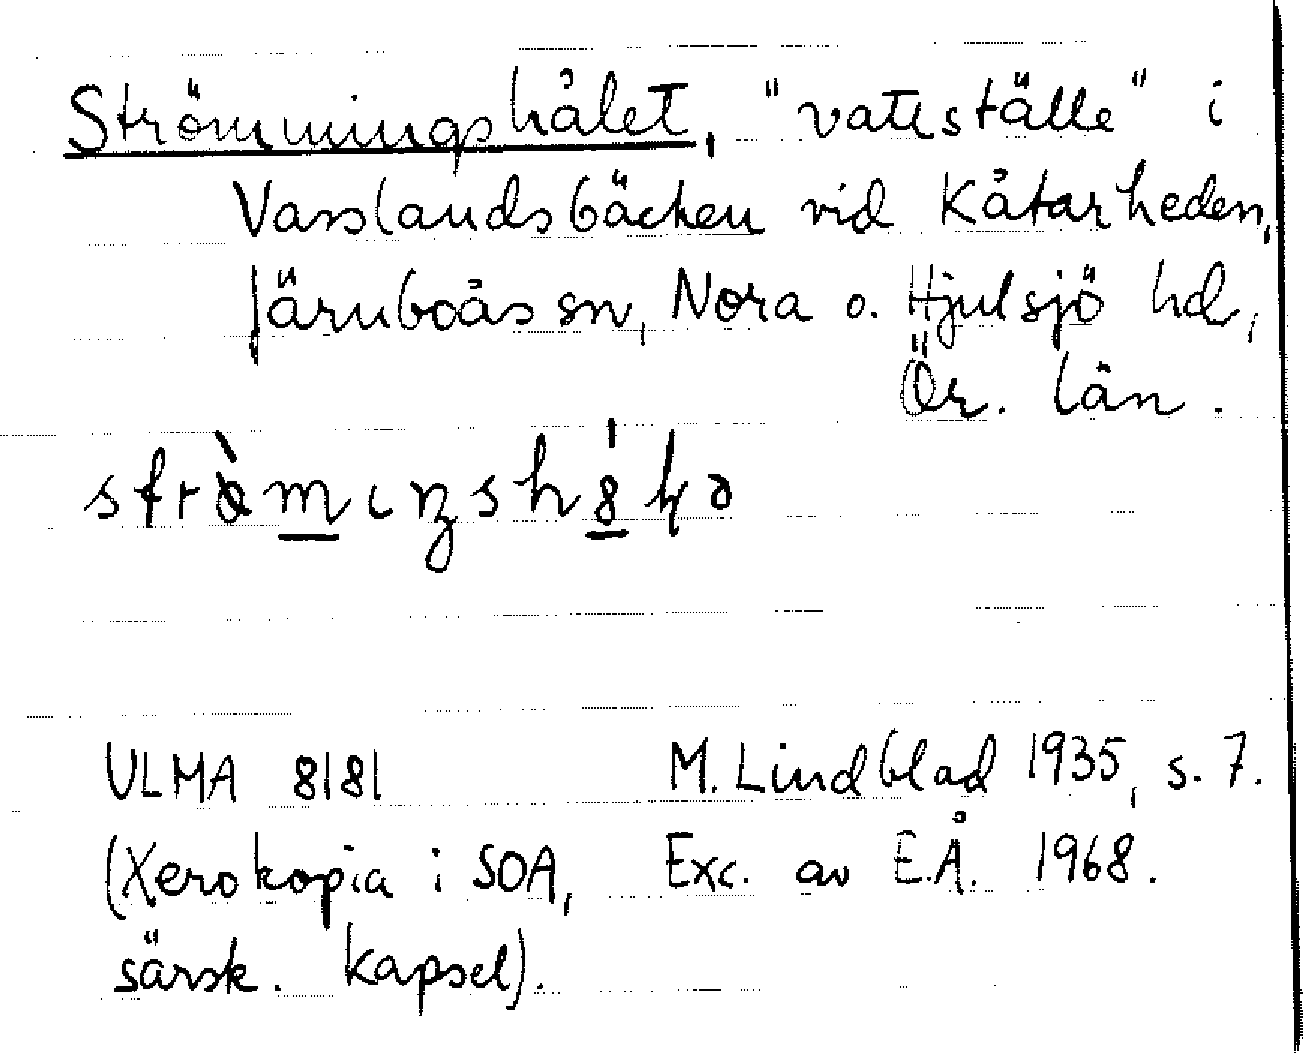 Strömmingshålet, "vattställe" i
Vasslandsbäcken vid Kåtarheden,
Järnboås sn, Nora o. Hjulsjö hd,
Ör. län.
ULMA 8181 M. Lindblad 1935, s. 7.
(Xerokopia i SOA, Exc. av E.Å. 1968.
särsk. kapsel).